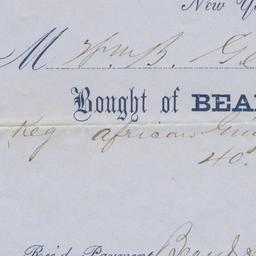 New Yo
M Wm B. Ge
Bought of BEA
Keg African Gin
40.
Rec'd Payment Beard